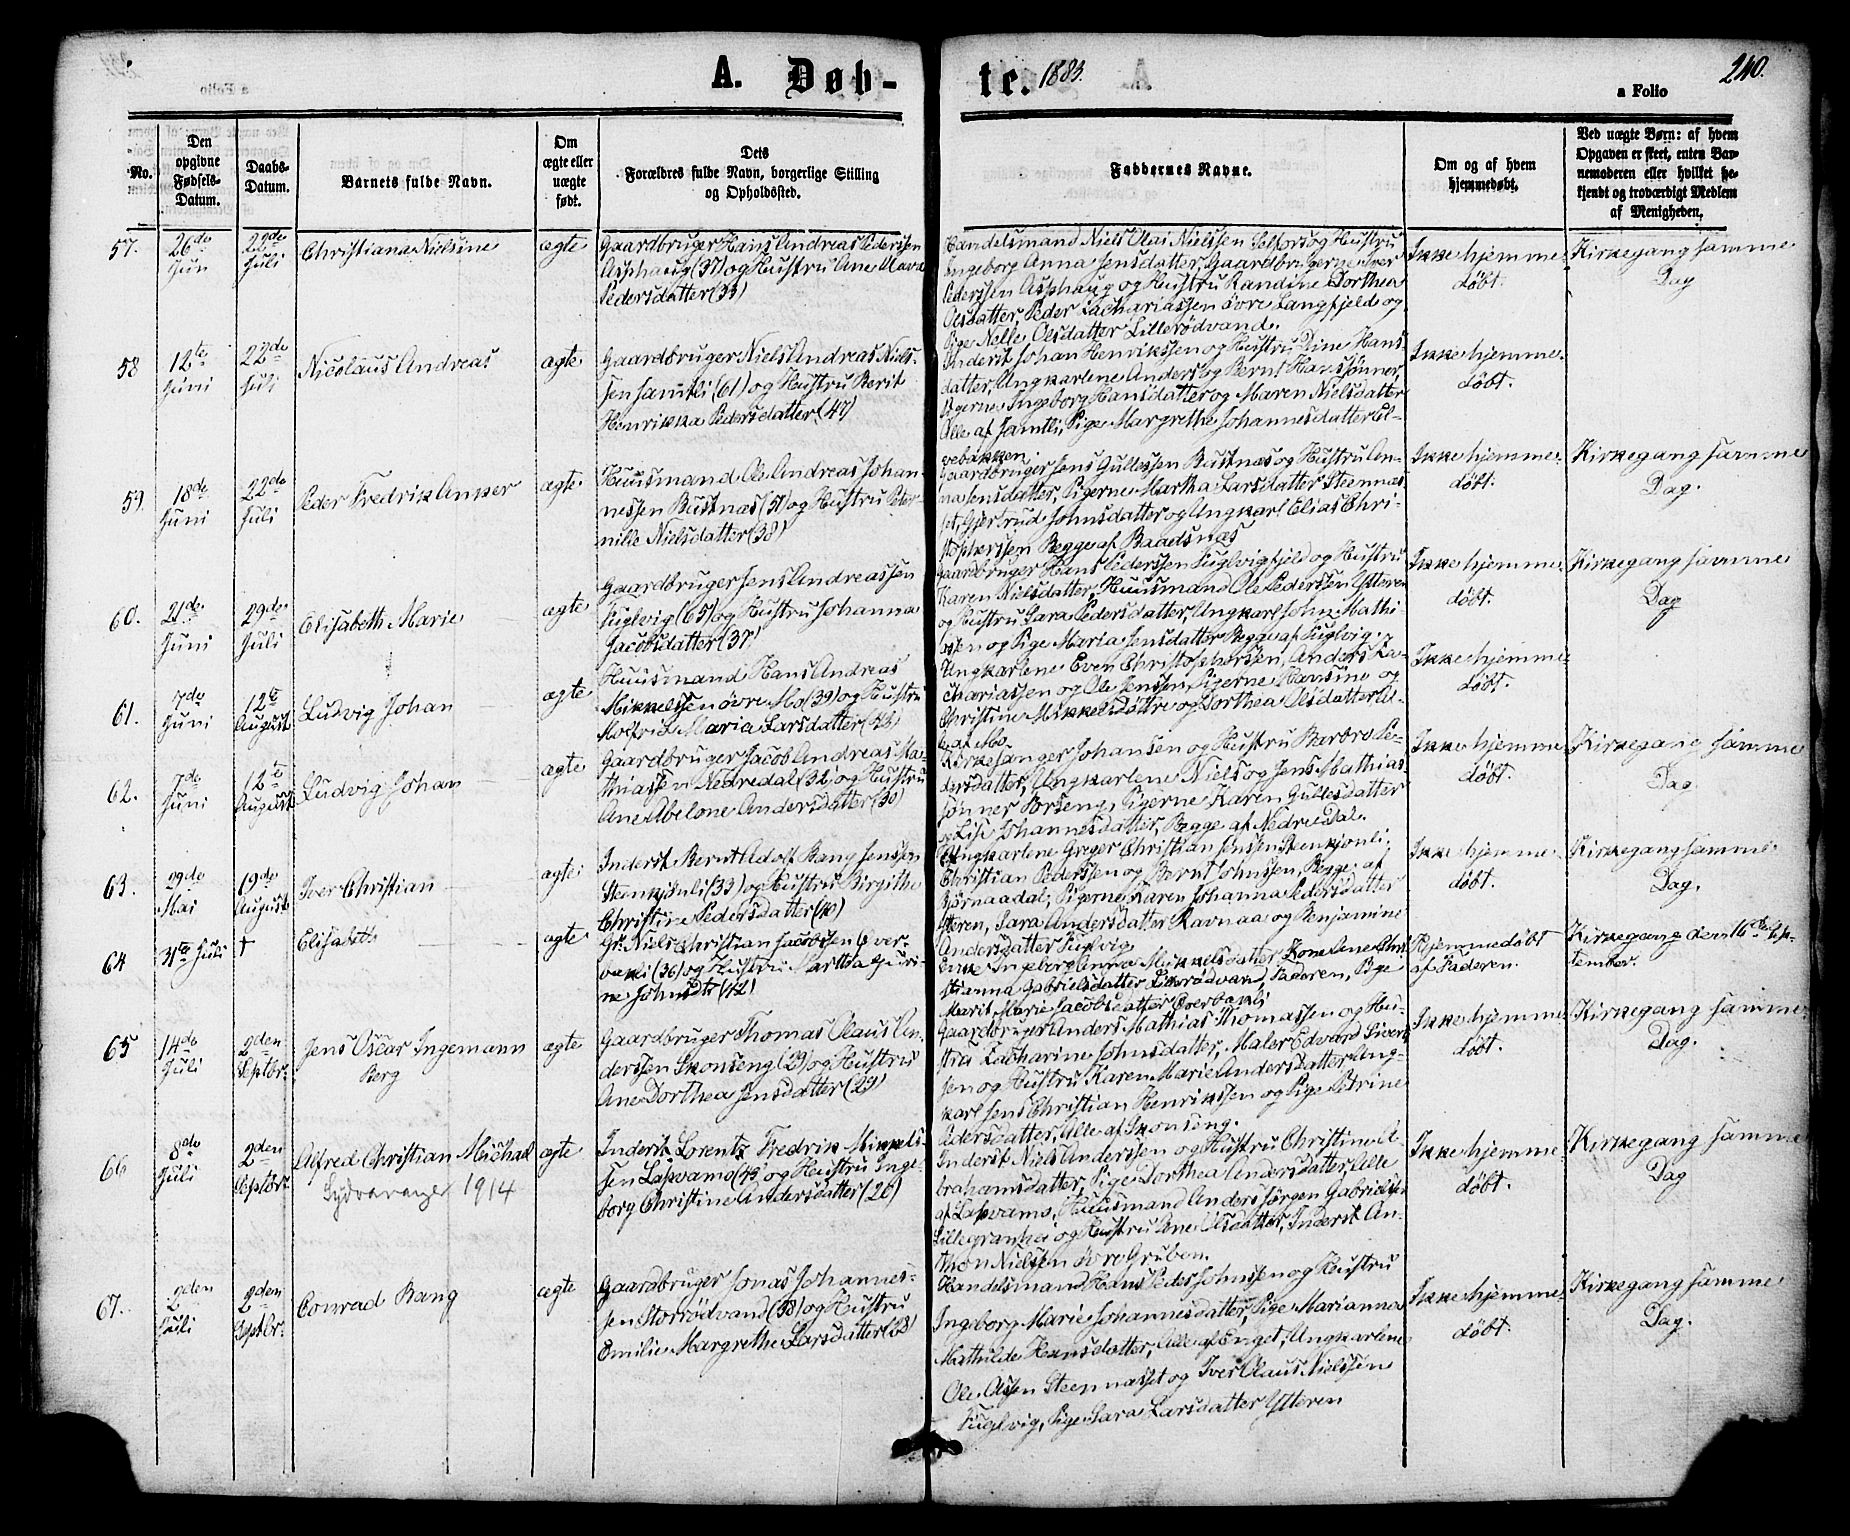 A. Døb-
te. 1883.
240.
a Folio
No.
Den opgivne Fødsels-Datum.
Daabs-Datum.
Barnets fulde Navn.
Om ægte eller uægte født.
Dets Forældres fulde Navn, borgerlige Stilling og Opholdssted.
Faddernes Navne.
Om og af hvem hjemmedøbt.
Ved uægte Børn: af hvem Opgaven er skeet, enten Barnemoderen eller hvilket bekjendt og troværdigt Medlem af Menigheden.
57.
26de Jun
22de Juli
Christiana Nielsine
ægte
Gaardbruger Hans Andreas Pedersen
Asphaug (37) og Hustru Ane Mara
Pedersdatter (33)
Handelsmand Niels Olai Nielssen Selfors og Hustru
Ingeborg Anna Jensdatter, Gaardbrugerne Iver
Pederssen Asphaug og Hustru Randine Dorthea
Olsdatter, Peder Zachariassen øvre Langfjeld og
Pige Nelle Olsdatter Lillerødvand.
Ikke hjemme
døbt.
Kirkegang samme
Dag
58
12te Juni
22de Juli
Nicolaus Andreas
ægte
Gaardbruger Niels Andreas Niels-
sen Jamtli (61) og Hustru Berit
Henrikka Pedersdatter (47)
Inderst Johan Henrikssen og Hustru Dine Hans-
datter, Ungkarlene Anders og Bernt Hanssønner,
Pigerne Ingeborg Hansdatter og Maren Nielsdatter
Alle af Jamtli, Pige Margrethe Johannesdatter El-
vebakken.
Ikke hjemme-
døbt.
59.
18de Juni
22de Juli
Peder Fredrik Anker
ægte
Huusmand Ole Andreas Johan-
nessen Bustnæs (51) og Hustru Peter-
nille Nielsdatter (38)
Gaardbruger Jens Gullessen Bustnæs og Hustru An-
na Jensdatter, Pigerne Martha Larsdatter Steennæs-
set, Gjertrud Johnsdatter og Ungkarl Elias Chri-
stophersen Begge af Baadsnæs
Ikke hjemme-
døbt.
Kirkegang samme
Dag.
60.
21de Juni
29de Juli
Elisabeth Marie
ægte
Gaardbruger Jens Andreassen
Fuglvig (65) og Hustru Johanna
Jacobsdatter (37)
Gaardbruger Hans Pederssen Fuglvigfjeld og Hustru
Karen Nielsdatter, Huusmand Ole Pederssen Ytteren
og Hustru Sara Pedersdatter, Ungkarl John Mathi-
sen og Pige Maria Jensdatter Begge af Fuglvig.
Ikke hjemme-
døbt.
Kirkegang samme
Dag
61.
7de Juni
12te August
Ludvig Johan
ægte
Huusmand Hans Andreas
Mikkelssen øvre Mo (39) og Hustru
Maria Larsdatter (43)
Ungkarlene Even Christophersen, Anders Za-
chariassen og Ole Jenssen, Pigerne Hansine og
Christine Mikkelsdøttre og Dorthea Olsdatter Al-
le af Mo.
Ikke hjemme-
døbt.
62.
7de Juni
12te August
Ludvig Johan
ægte
Gaardbruger Jacob Andreas Ma-
thiassen Nedredal (32) og Hustru
Ane Abelone Andersdatter (30)
Kirkesanger Johansen og Hustru Barbro Pe-
dersdatter, Ungkarlene Niels og Jens Mathias-
sønner Forseng, Pigerne Karen Gullesdatter
og Lise Johannesdatter, Begge af Nedredal.
Ikke hjemme
døbt.
Kirkegang samme
Dag.
63.
29de Mai
19de August
Iver Christian
ægte
Inderst Bernt Adolf Bang Jenssen
(33) og Hustru Birgithe
Christine Pedersdatter (40)
Ungkarlene Greger Christian Jenssen
Christian Pederssen og Bernt Johnssen, Begge af
Bjørnaadal, Pigerne Karen Johanna Pedersdatter
Ytteren, Sara Andersdatter Ravnaa og Benjamine
Andersdatter Fuglvig
Ikke hjemme
døbt.
Kirkegang samme
Dag.
64
31te Juli
†
Elisabeth
ægte
Gr. Niels Christian Jacobssen Over-
(36) og Hustru Martha
ne Johnsdtr (42)
Enke Ingeborg Anna Mikkelsdatter, Kone Ane Chri-
stianna Gabrielsdatter, Faderen, Pige
Marit Marie Jacobsdatter
Hjemmedøbt
af Faderen.
Kirkegang den 16de Sep-
tember.
65
14de Juli
2den Septbr.
Jens Oscar Ingemann
Berg
ægte
Gaardbruger Thomas Olaus An-
derssen Skonseng (29) og Hustru
Ane Dorthea Jensdatter (29)
Gaardbruger Anders Mathias Thomassen og Hu-
stru Zacharine Johnsdatter, Maler Edvard Sivert-
sen og Hustru Karen Marie Andersdatter, Ung-
karl Jens Christian Henrikssen og Pige Petrine
Pedersdatter, Alle af Skonseng.
Ikke hjemme
døbt.
Kirkegang samme
Dag.
66
8de Juli
2den Septbr.
Alfred Christian Michael
Sydvaranger 1914
ægte
Inderst Lorentz Fredrik Mikkels-
sen Lapvamo (43) og Hustru Inge-
borg Christine Andersdatter (26)
Inderst Niels Anderssen og Hustru Christine A-
brahamsdatter, Pige Dorthea Andersdatter, Alle
af Lapvamo, Huusmand Anders Jørgen Gabrielsen
Lillegranhei og Hustru Ane Olsdatter, Inderst An-
thon Nielssen øvre Gruben.
Ikke hjemme-
døbt.
Kirkegang samme
Dag
67.
2den Juli
2den Septbr.
Conrad Bang
ægte
Gaardbruger Jonas Johannes-
sen Storrødvand (38) og Hustru
Emilie Margrethe Larsdatter (38)
Handelsmand Hans Peder Johnsen og Hustru
Ingeborg Marie Johannesdatter, Pige Marianne
Mathilde Hansdatter, Alle af Enget, Ungkarlene
Ole Olssen Steennæsset og Iver Olaus Nielssen
Fuglvig, Pige Sara Larsdatter Ytteren
Ikke hjemme-
døbt.
Kirkegang samme
Dag.